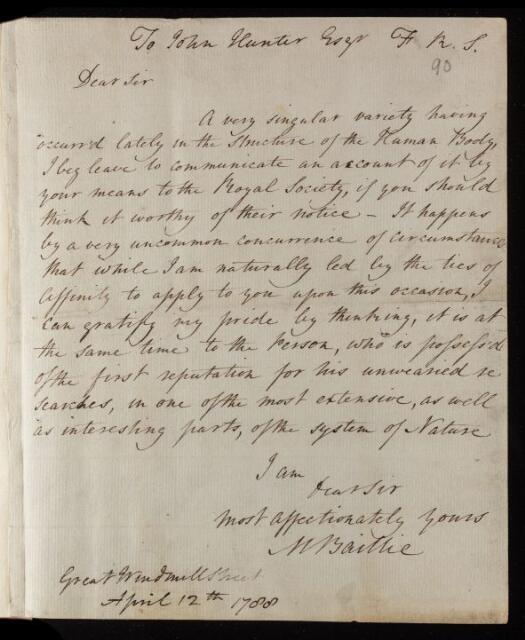 To John Hunter Esqr F. R. S.
90
Dear Sir
A very singular variety having
occurr'd lately in the structure of the Human Body,
I beg leave to communicate an account of it by
your means to the Royal Society, if you should
think it worthy of their notice – It happens
by a very uncommon concurrence of circumstances
that while I am naturally led by the ties of
affinity to apply to you upon this occasion, I
can gratify my pride by thinking, it is at
the same time to the Person, who is possess'd
of the first reputation for his unwearied re
searches, in one of the most extensive, as well
as interesting parts, of the system of Nature
I am
Dear Sir
most affectionately yours
M Baillie
Great Windmill Street
April 12th 1788